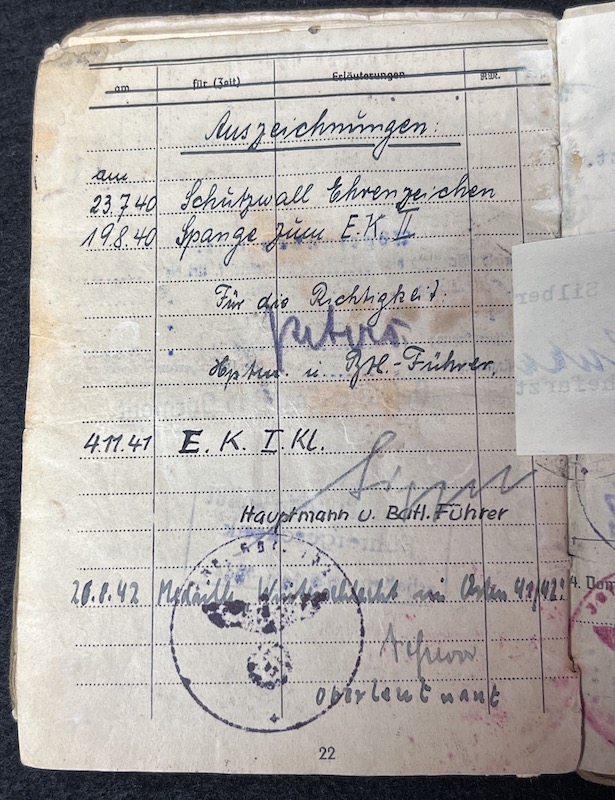 am für (Zeit) Erläuterungen NW.
Auszeichnungen:
am
23.7.40 Schutzwall Ehrenzeichen
19.8.40 Spange zum E. K. II
Für die Richtigkeit:
Hptm. u. Btl.-Führer,
4.11.41 E. K. I. Kl.
Hauptmann u. Batl. Führer
20.8.42 Medaille Winterschlacht im Osten 41/42.
Oberleutnant
22
Silber